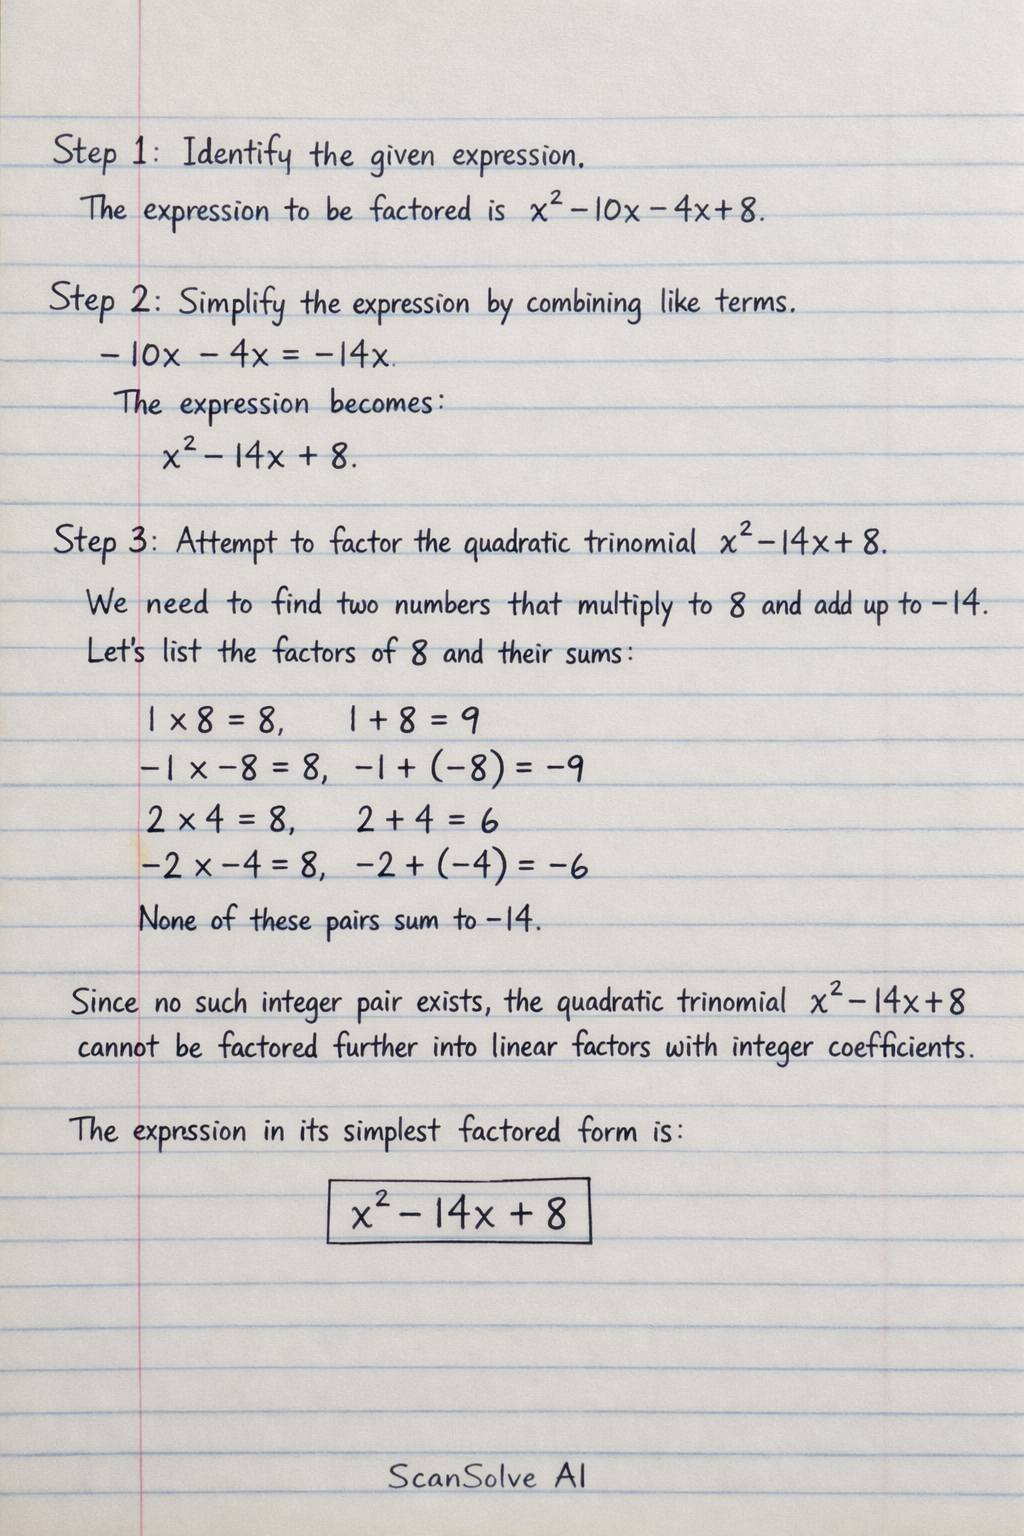 Step 1: Identify the given expression.
The expression to be factored is x² − 10x − 4x + 8.
Step 2: Simplify the expression by combining like terms.
− 10x − 4x = −14x.
The expression becomes:
x² − 14x + 8.
Step 3: Attempt to factor the quadratic trinomial x² − 14x + 8.
We need to find two numbers that multiply to 8 and add up to −14.
Let's list the factors of 8 and their sums:
1 × 8 = 8, 1 + 8 = 9
−1 × −8 = 8, −1 + (−8) = −9
2 × 4 = 8, 2 + 4 = 6
−2 × −4 = 8, −2 + (−4) = −6
None of these pairs sum to −14.
Since no such integer pair exists, the quadratic trinomial x² − 14x + 8
cannot be factored further into linear factors with integer coefficients.
The expression in its simplest factored form is:
x² − 14x + 8
ScanSolve AI